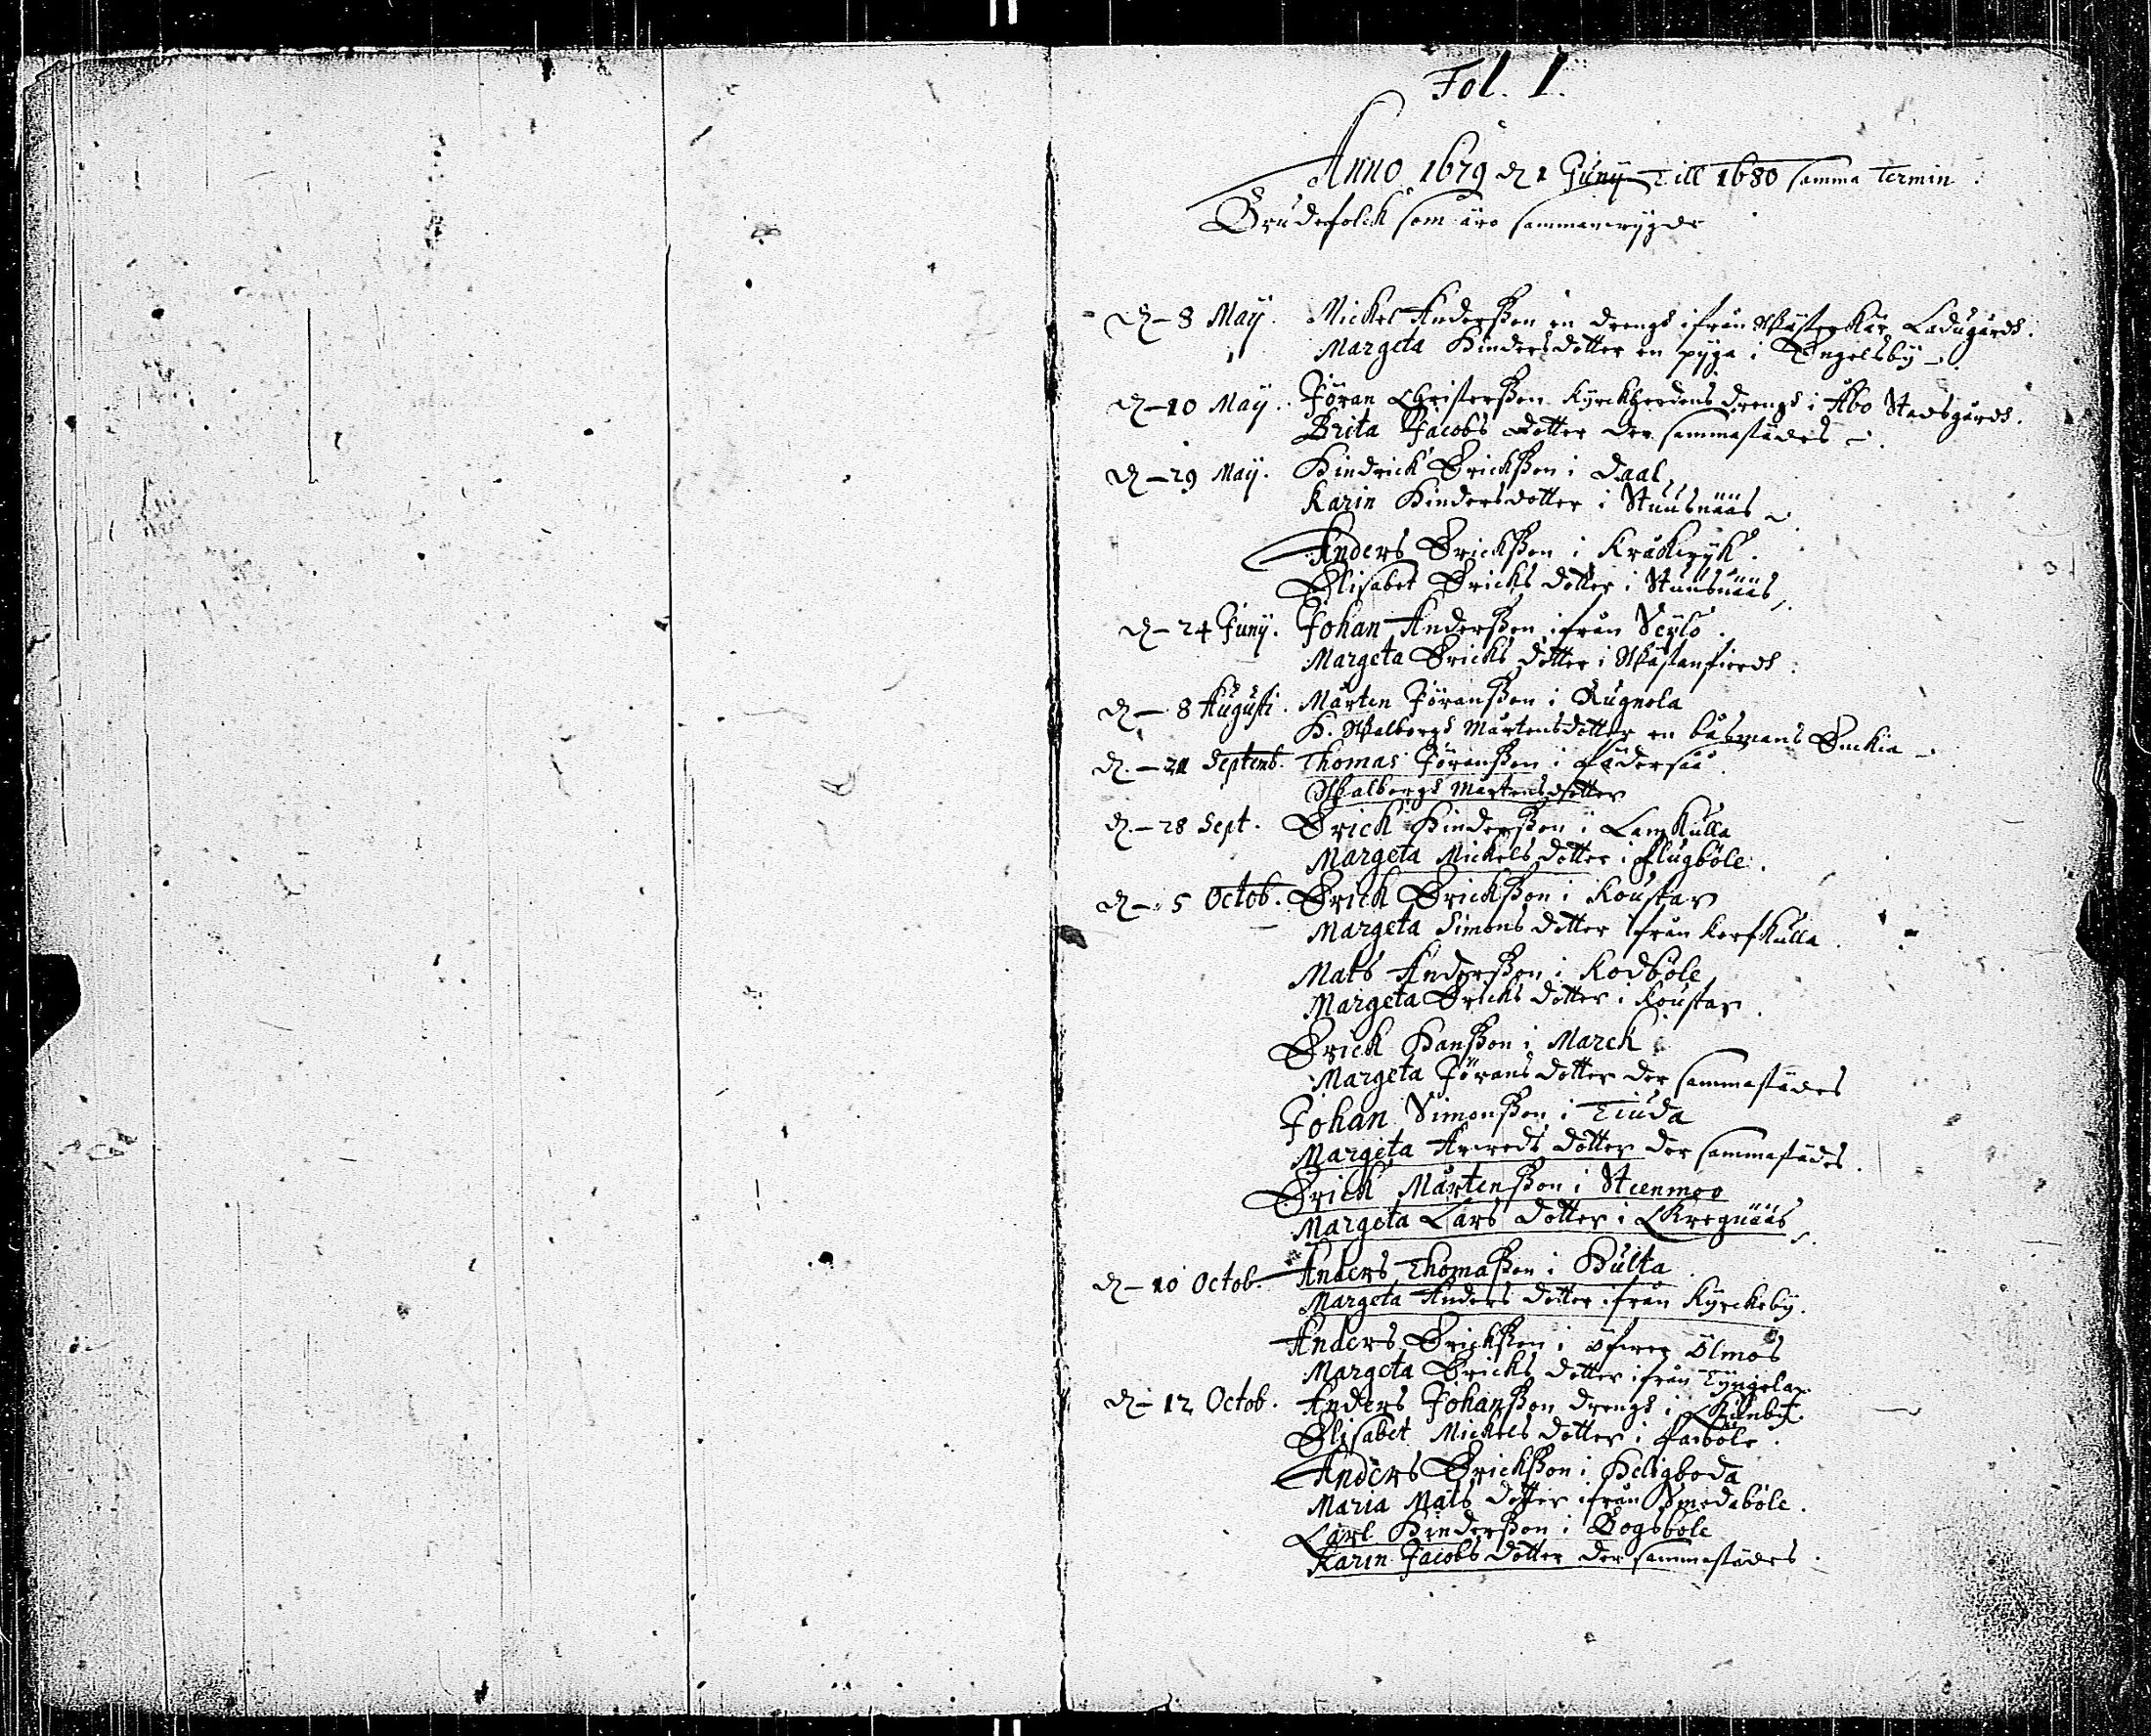 Fol. 1.
Anno 1679 d 1 Junij Till 1680 samma Termin.
Brudefolck som äro sammanwijgde
d - 8 Maij. Mickel Andersson en drengh ifrån Wästerkär Ladugårdh.
Margeta Hindersdotter en pyga i Engelsby
d - 10 Maij. Jöran Christersson Kyrckherdens drengh i Åbo Stadsgårdh.
Brita Jacobs dotter der sammastädes
d - 29 Maij. Hindrick Erickson i Daal
Karin Hindersdotter i Stuusnääs
Anders Erickson i Kråkewijk.
Elisabet Ericks dotter i Stuusnääs
d - 24 Junij. Johan Andersson ifrån
Margeta Ericks dotter i Wästanfierdh.
d - 8 Augusti. Mårten Jöransson i Rugnola
H. Walborgh Mårtensdotter en båsmans Enckia
d - 21 Septemb. Thomas Jöransson i
Walborgh Mårtensdotter
d - 28 Sept. Erick Hindersson i Lamkulla
Margeta Mickels dotter i Flugböle.
d - 5 Octob. Erick Erickson i
Margeta Simons dotter ifrån
Mats Andersson i Rodböle
Margeta Ericks dotter i
Erick Hansson i Marck
Margeta Jörans dotter der sammastädes
Johan Simonsson i Tiuda
Margeta Anredt dotter der sammastädes.
Erick Mårtensson i Steenmoo
Margeta Lars dotter i Skregnääs
d - 10 Octob. Anders Thomasson i Hulta
Margeta Anders dotter ifrån Kyrckeby.
Anders Erickson i Öfwer Ölmos
Margeta Ericks dotter ifrån
d - 12 Octob. Anders Johansson drengh i
Elisabet Mickels dotter i
Anders Erickson i Helgboda
Maria Mats dotter ifrån Smedaböle.
Carl Hindersson i Bogsböle
Karin Jacobs dotter der sammastädes.